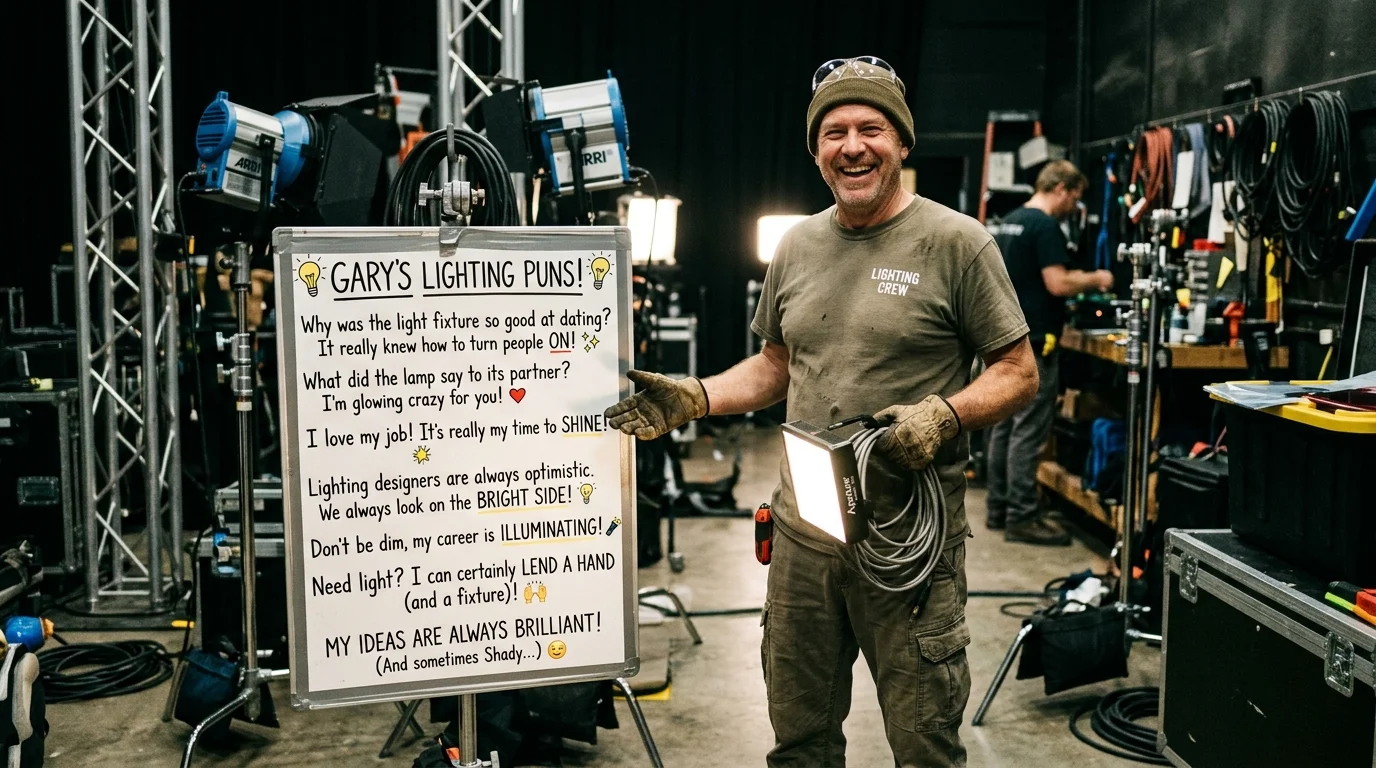 ARRI
ARRI
GARY'S LIGHTING PUNS!
Why was the light fixture so good at dating?
It really knew how to turn people ON!
What did the lamp say to its partner?
I'm glowing crazy for you!
I love my job! It's really my time to SHINE!
Lighting designers are always optimistic.
We always look on the BRIGHT SIDE!
Don't be dim, my career is ILLUMINATING!
Need light? I can certainly LEND A HAND
(and a fixture)!
MY IDEAS ARE ALWAYS BRILLIANT!
(And sometimes Shady...)
LIGHTING
CREW